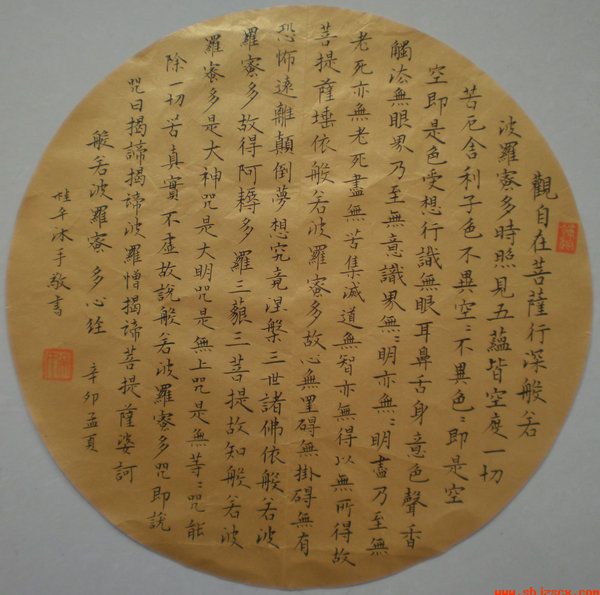 觀自在菩薩行深般若
波羅蜜多時照見五蘊皆空度一切
苦厄舍利子色不異空〻不異色〻即是空
空即是色受想行識無眼耳鼻舌身意色聲香
觸法無眼界乃至無意識界無〻明亦無〻明盡乃至無
老死亦無老死盡無苦集滅道無智亦無得以無所得故
菩提薩埵依般若波羅蜜多故心無罣碍無掛碍無有
恐怖遠離顛倒夢想究竟涅槃三世諸佛依般若波
羅蜜多故得阿耨多羅三藐三菩提故知般若波
羅蜜多是大神咒是大明咒是無上咒是無等〻咒能
除一切苦真實不虛故說般若波羅蜜多咒即說
咒曰揭諦揭諦波羅憎揭諦菩提薩婆訶
般若波羅蜜多心經 辛卯孟夏
沐手敬書